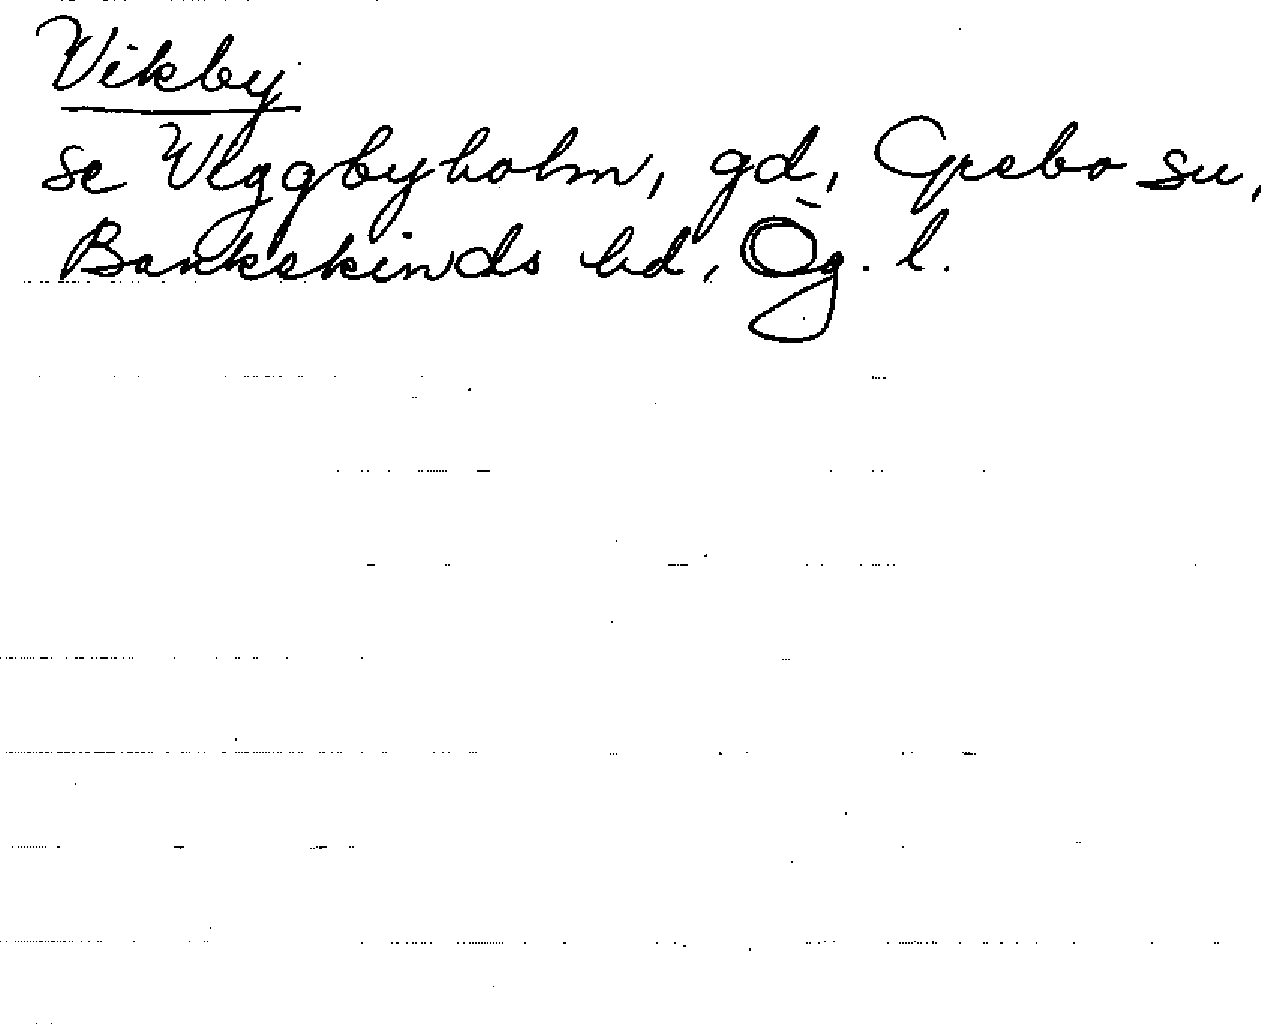 Vikby
se Viggbyholm, gd, Grebo sn,
Bankekinds hd, Ög. l.